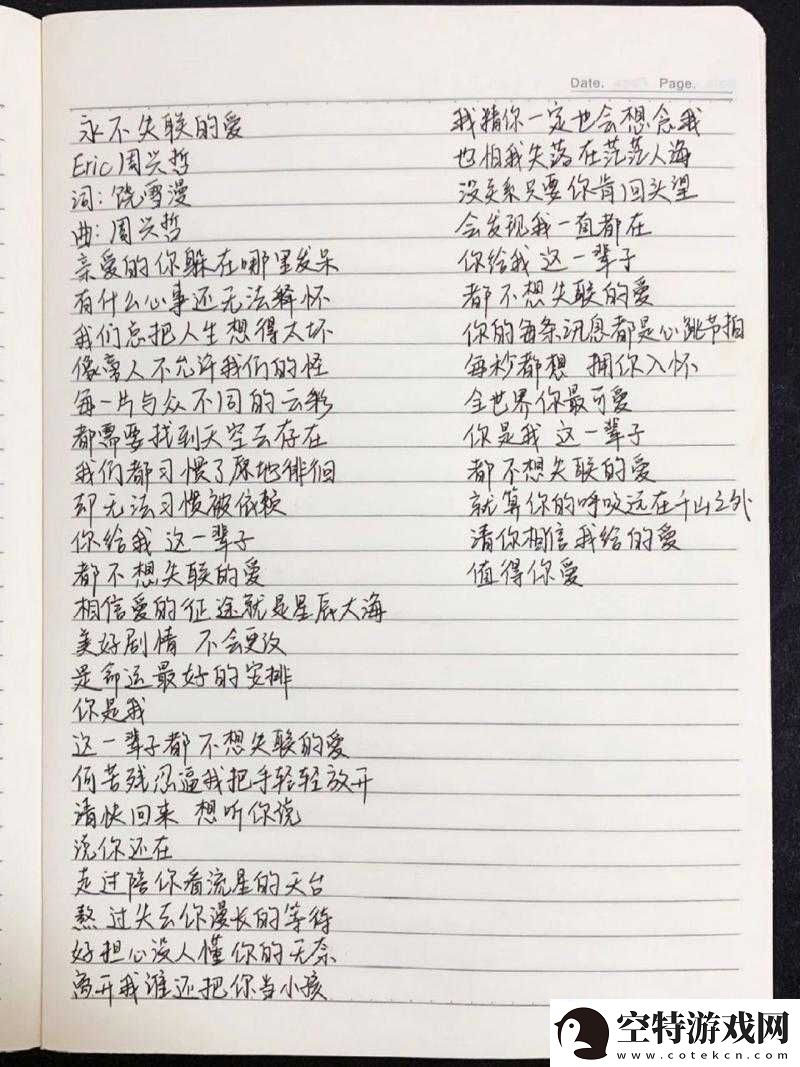 Date.
Page.
永不失联的爱
Eric周兴哲
词:饶雪漫
曲:周兴哲
亲爱的你躲在哪里发呆
有什么心事还无法释怀
我们总把人生想得太坏
像旁人不允许我们的怪
每一片与众不同的云彩
都需要找到天空去存在
我们都习惯了原地徘徊
却无法习惯被依赖
你给我 这一辈子
都不想失联的爱
相信爱的征途就是星辰大海
美好剧情 不会更改
是命运最好的安排
你是我
这一辈子都不想失联的爱
何苦残忍逼我把手轻轻放开
请快回来 想听你说
说你还在
走过陪你看流星的天台
熬过失去你漫长的等待
好担心没人懂你的无奈
离开我谁还把你当小孩
我猜你一定也会想念我
也怕我失落在茫茫人海
没关系只要你肯回头望
会发现我一直都在
你给我 这一辈子
都不想失联的爱
你的每条讯息都是心跳节拍
每秒都想 拥你入怀
全世界你最可爱
你是我 这一辈子
都不想失联的爱
就算你的呼吸远在千山之外
请你相信我给的爱
值得你爱
空特游戏网
www.cotekcn.com